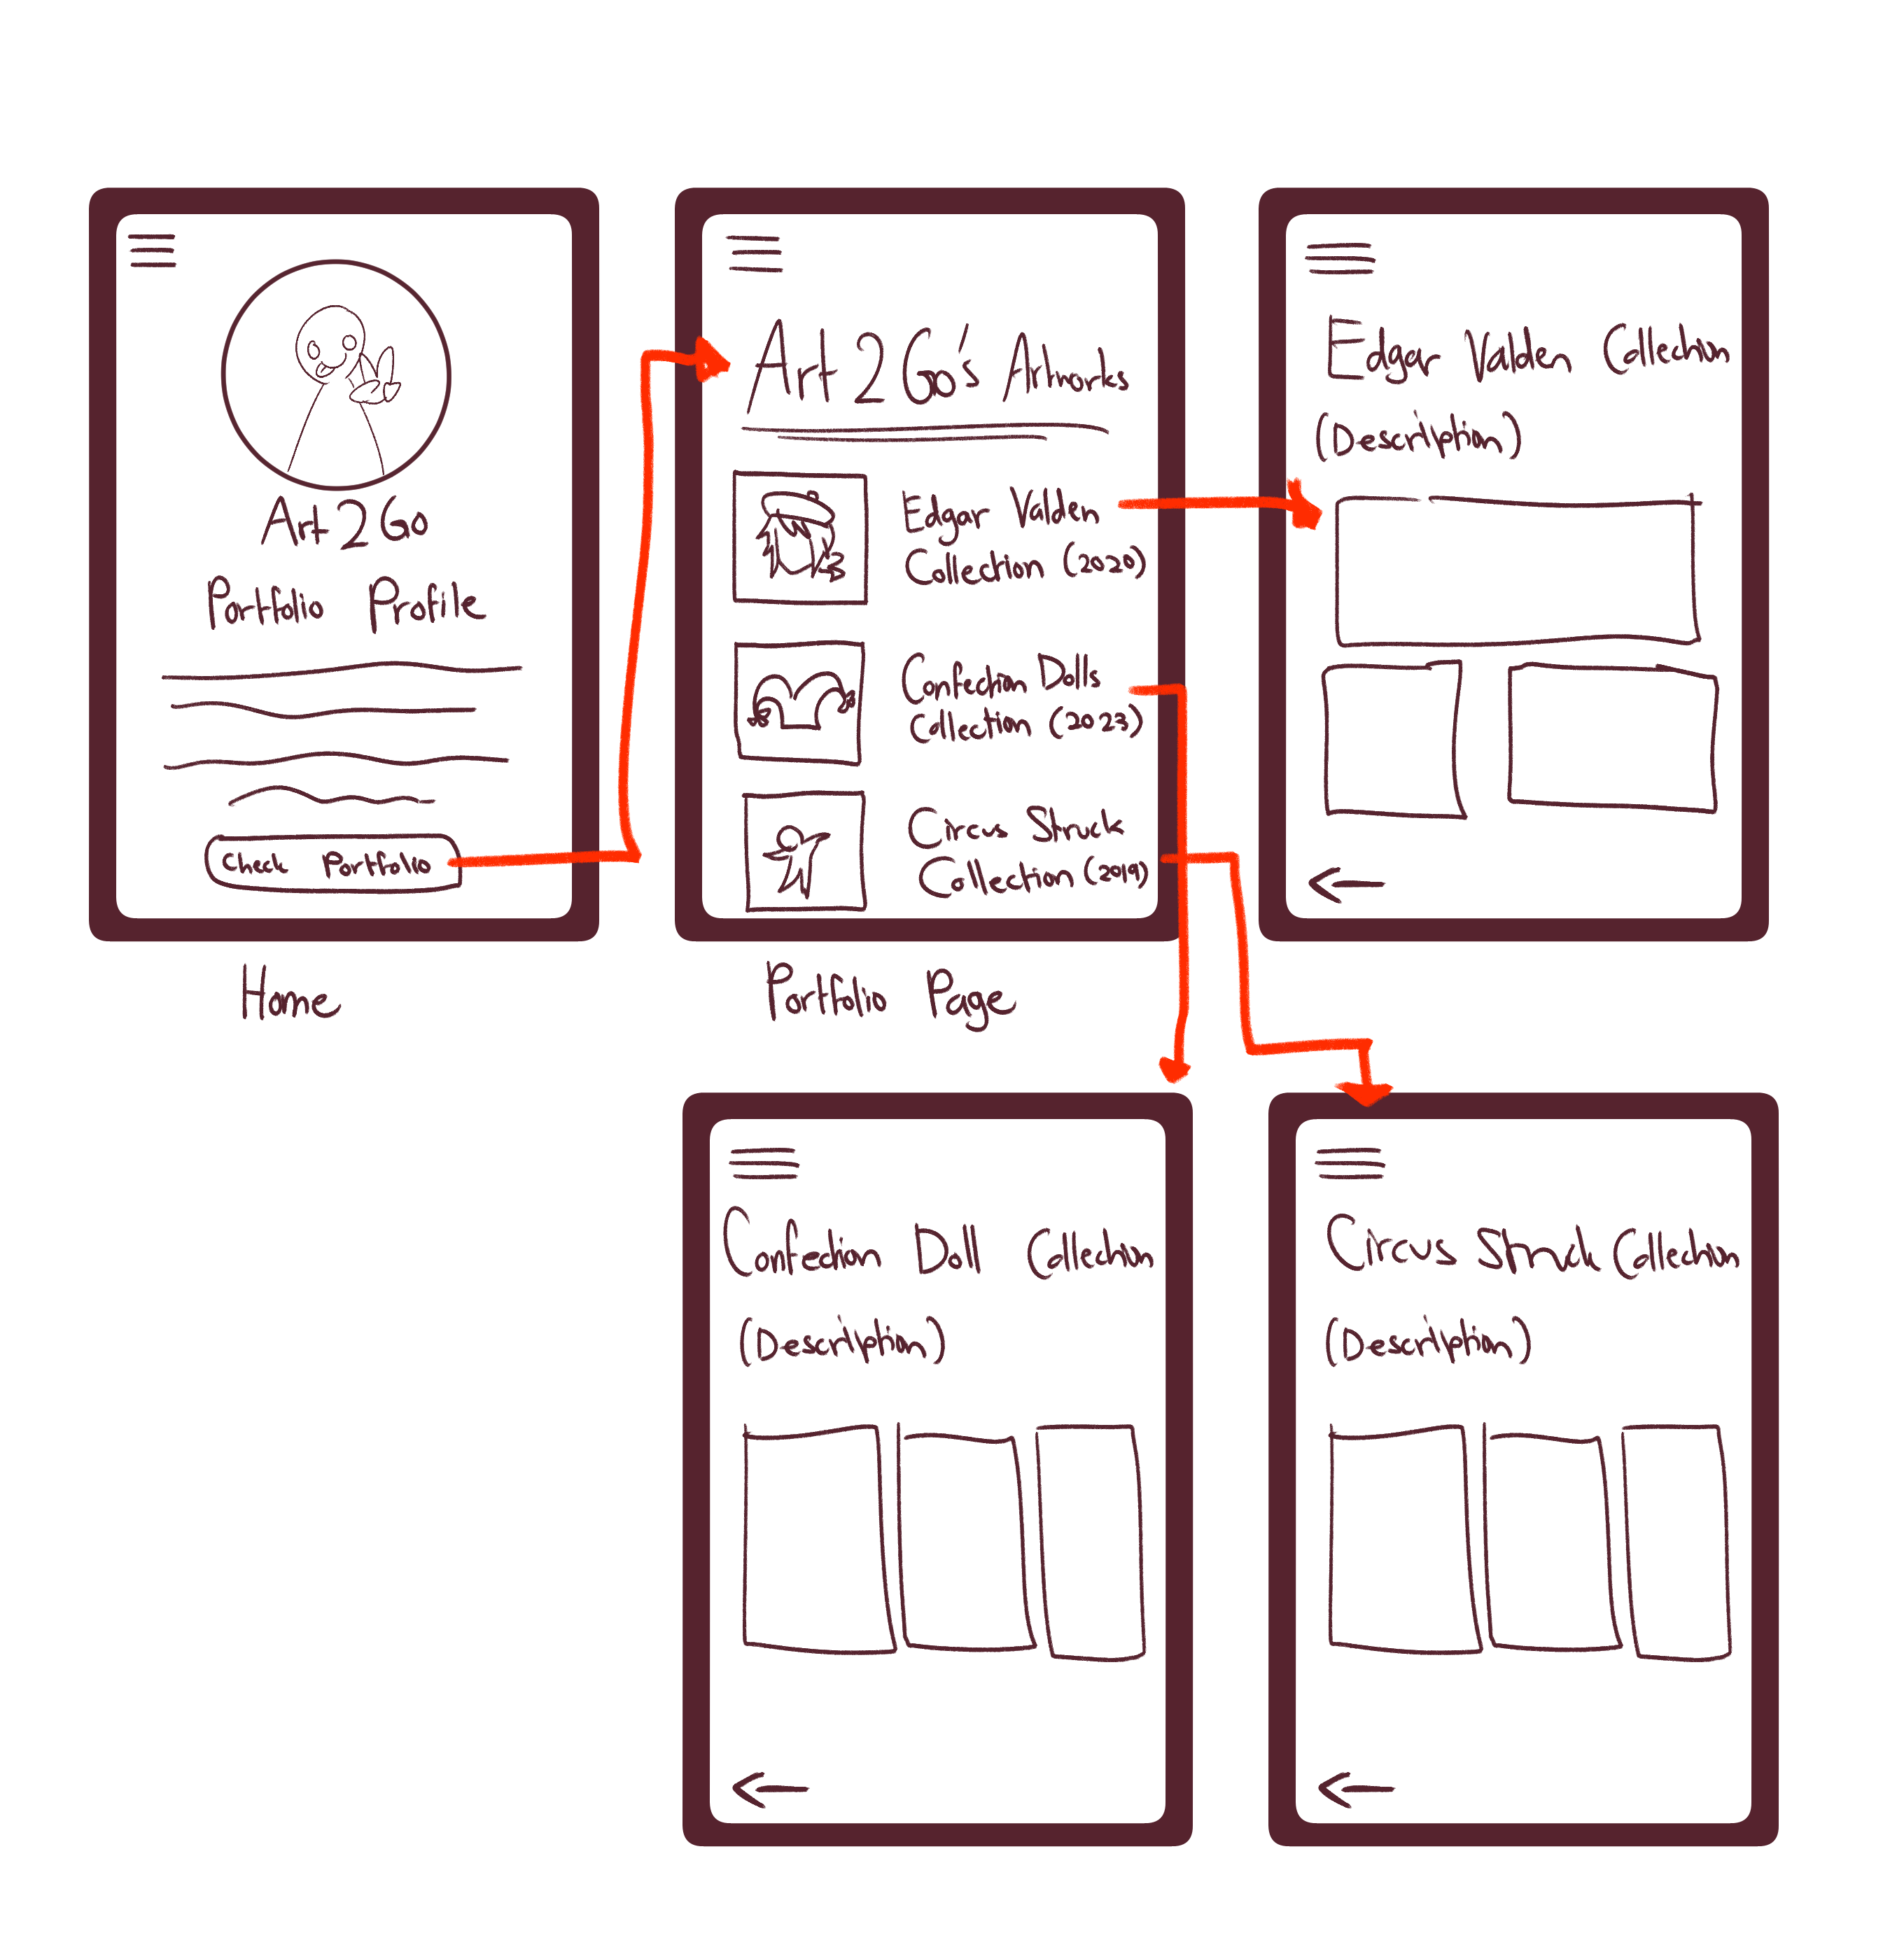 Art 2 Go
Portfolio Profile
Check Portfolio
Home
Art 2 Go's Artworks
Edgar Valden
Collection (2020)
Confection Dolls
Collection (2023)
Circus Struck
Collection (2019)
Portfolio Page
Edgar Valden Collection
(Description)
Confection Doll Collection
(Description)
Circus Struck Collection
(Description)